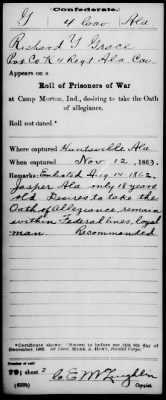 Confederate.
G 4 Cav Ala
Richard Y Grace
Co K 4 Regt Ala Cav.
Appears on a
Roll of Prisoners of War
at Camp Morton, Ind., desiring to take the Oath
of allegiance.
Roll not dated.*
Where captured Huntsville Ala
When captured Nov 12, 1863.
Remarks: Enlisted Aug 14 1862
Jasper Ala only 18 years
old Desires to take the
Oath of Allegiance, remain
within Federal lines, loyal
man. Recommended.
Number of roll:
79; sheet 2